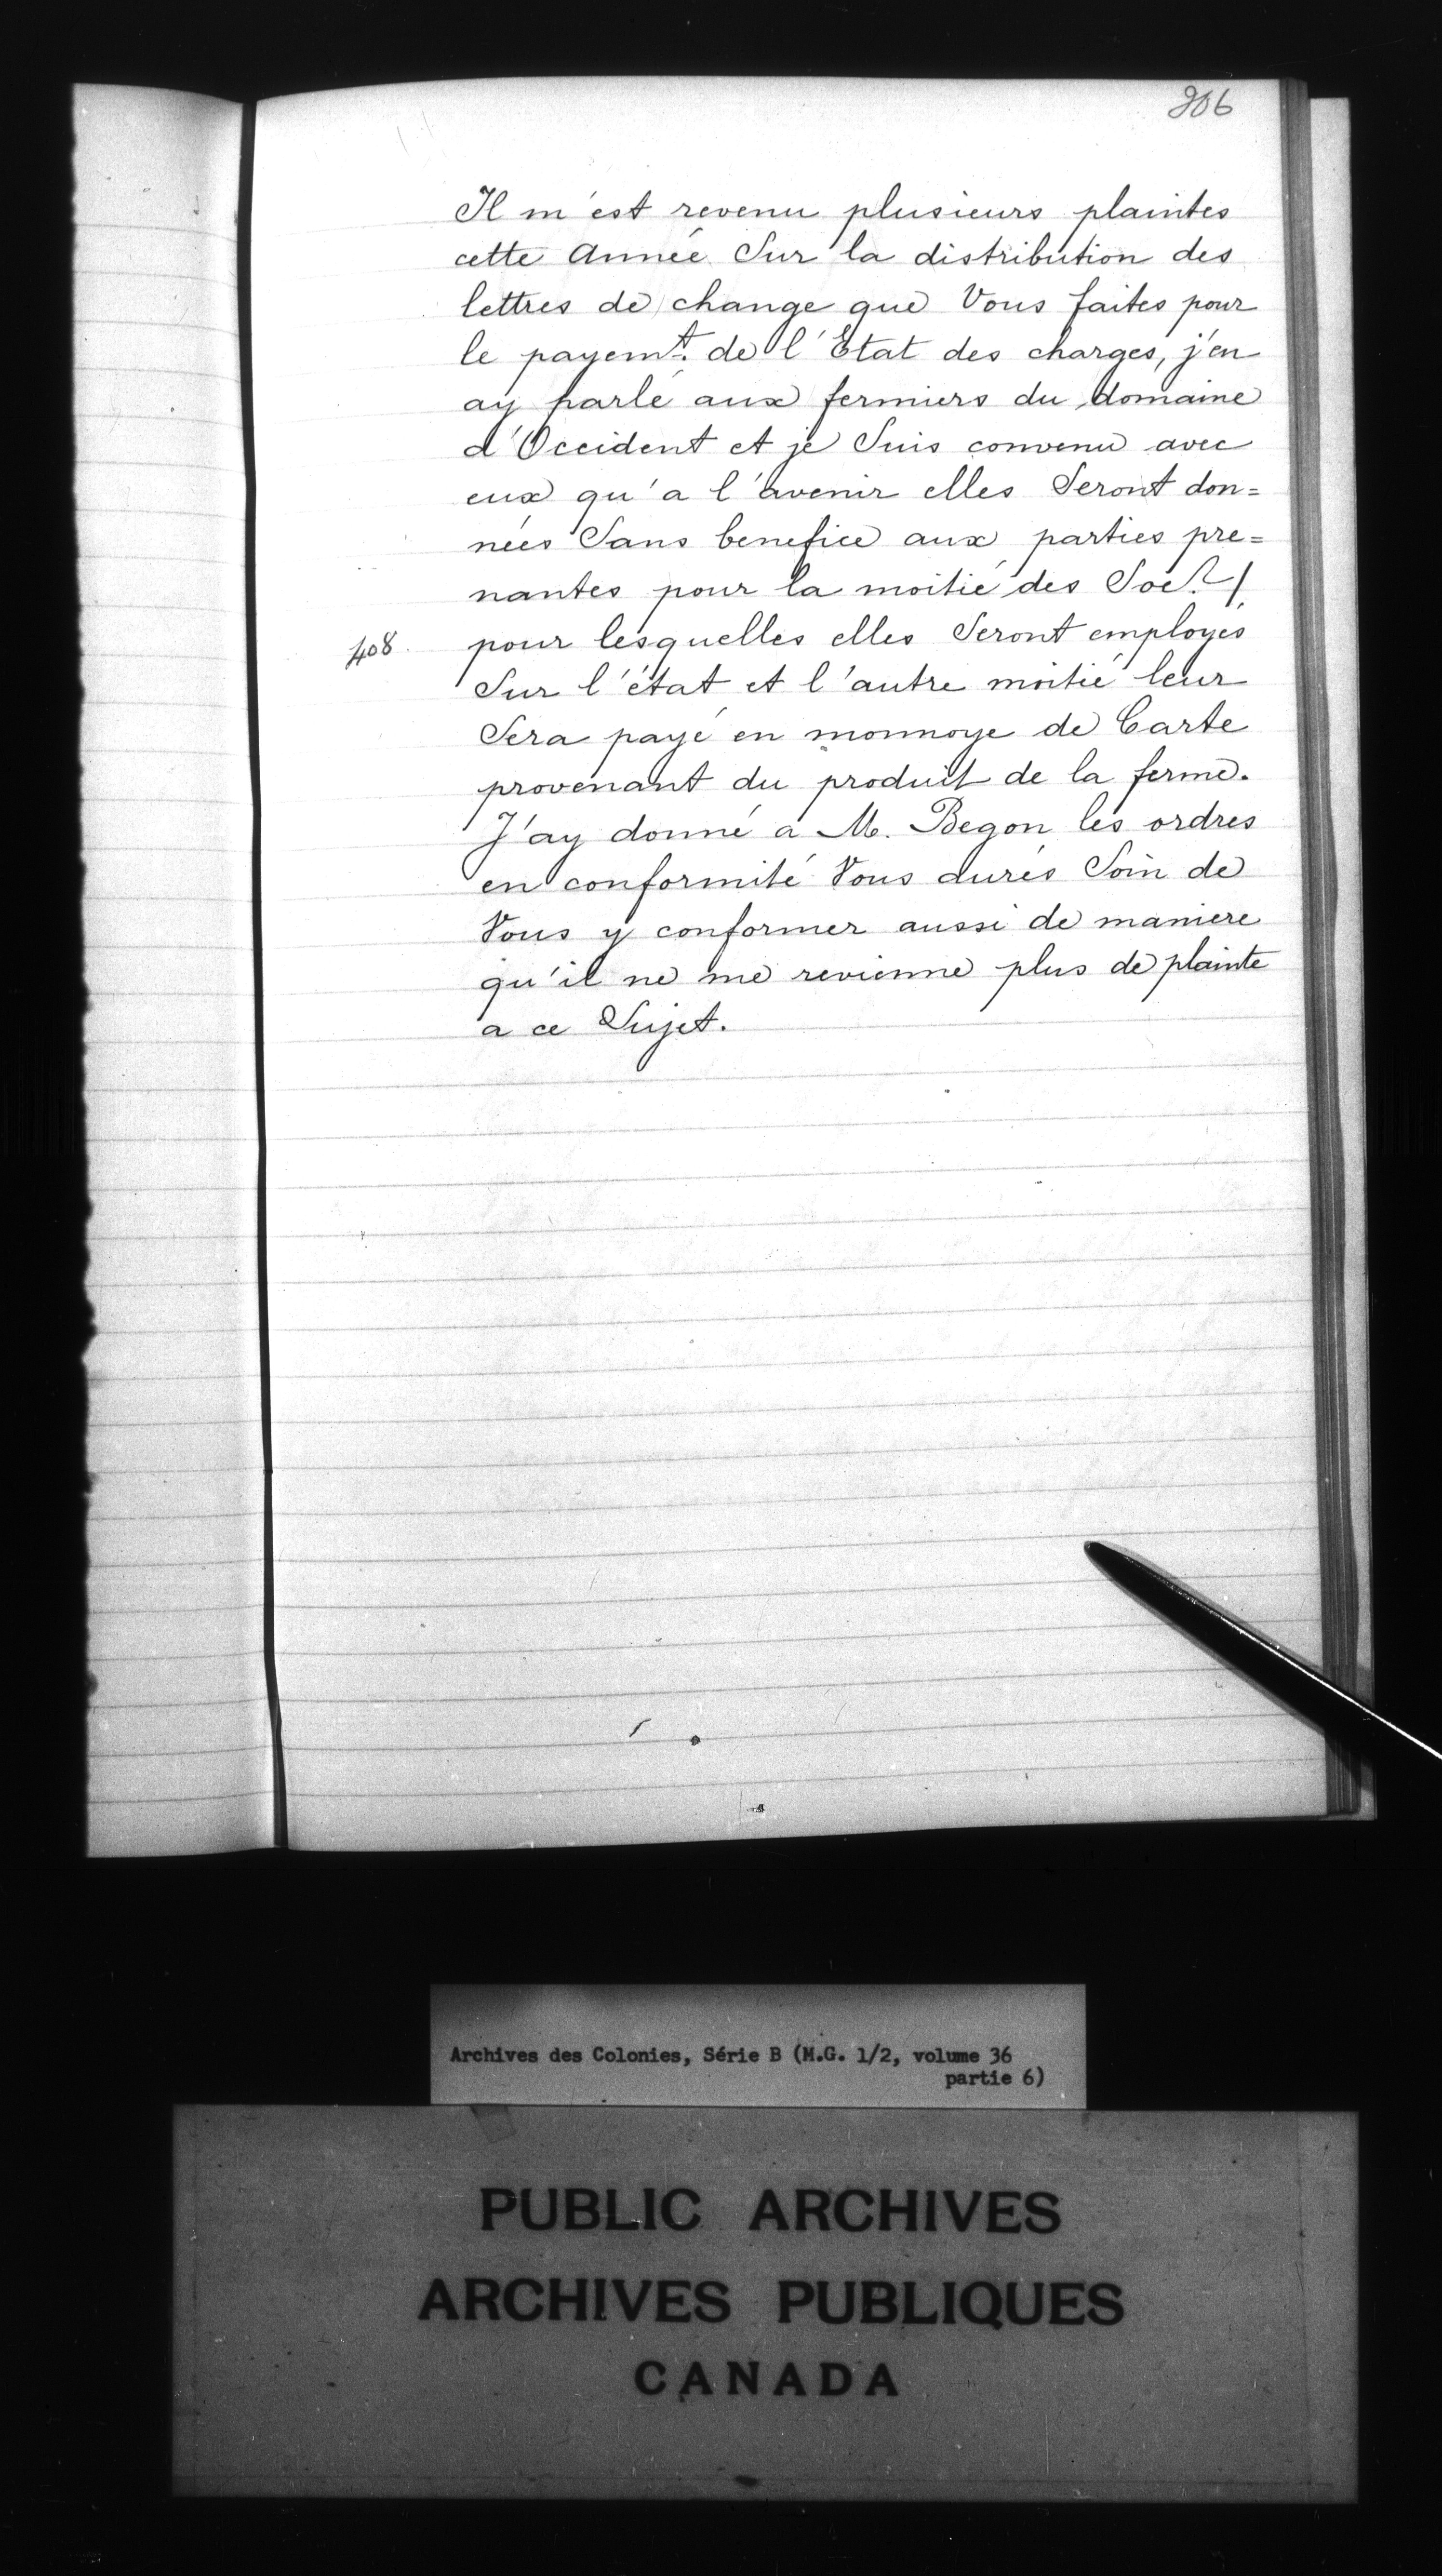 206
Il m'est revenu plusieurs plaintes
cette Année Sur la distribution des
lettres de change que Vous faites pour
le payemt. de l'Etat des charges, j'en
ay parlé aux fermiers du domaine
d'Occident et je Suis convenu avec
eux qu'a l'avenir elles Seront don=
nées Sans benefice aux parties pre=
nantes pour la moitié des /
408. pour lesquelles elles Seront employés
Sur l'état et l'autre moitié leur
Sera payé en monnoye de Carte
provenant du produit de la ferme.
J'ay donné a M. Begon les ordres
en conformité Vous aurés Soin de
Vous y conformer aussi de maniere
qu'il ne me revienne plus de plainte
a ce Sujet.
Archives des Colonies, Série B (M.G. 1/2, volume 36
partie 6)
PUBLIC ARCHIVES
ARCHIVES PUBLIQUES
CANADA